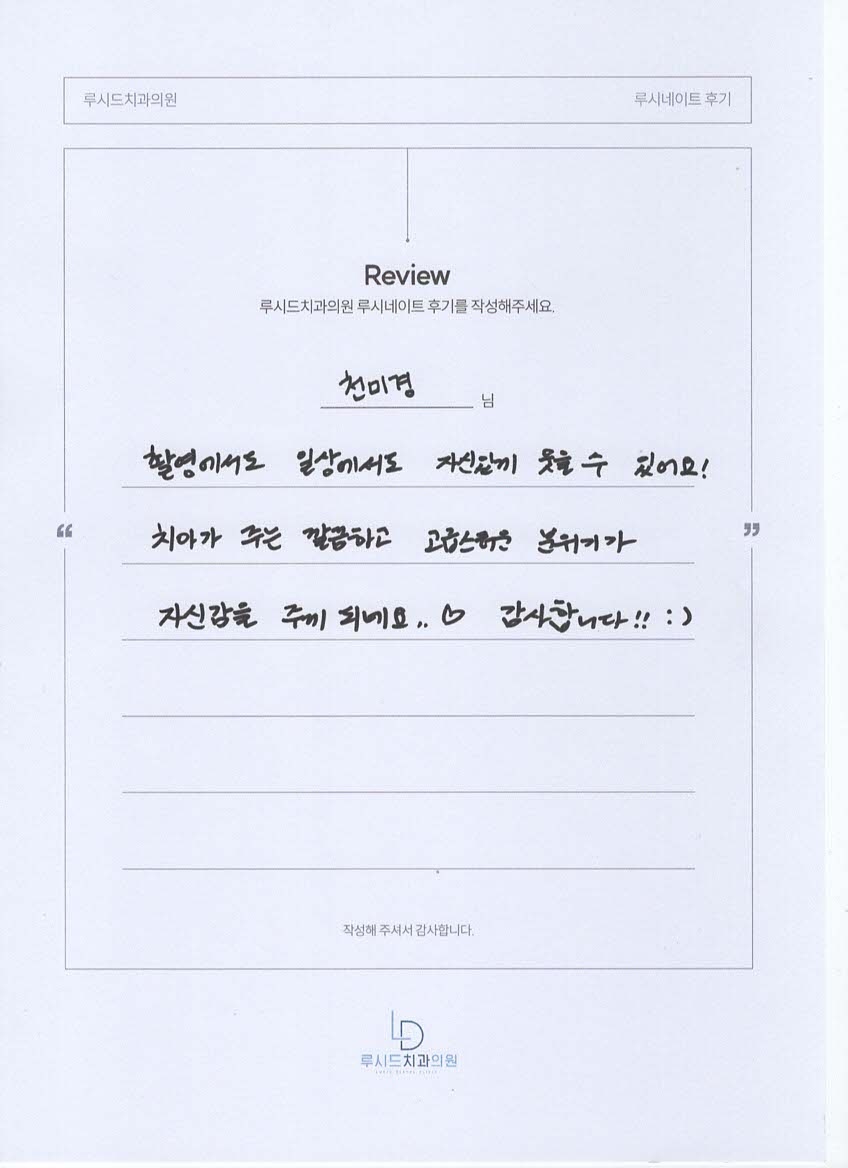 루시드치과의원 루시네이트 후기
Review
루시드치과의원 루시네이트 후기를 작성해주세요.
천미경 님
촬영에서도 일상에서도 자신있게 웃을 수 있어요!
“ 치아가 주는 깔끔하고 고급스러운 분위기가 ”
자신감을 주게 되네요.. ♡ 감사합니다!! :)
작성해 주셔서 감사합니다.
LD
루시드치과의원
LUCID DENTAL CLINIC